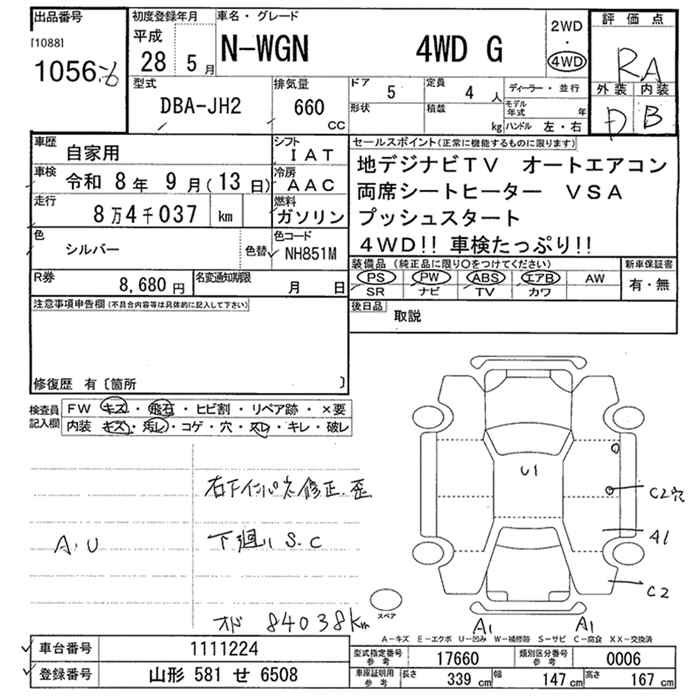 出品番号
[1088]
1056
初度登録年月
平成
28年 5月
車名・グレード
N-WGN 4WD G
2WD
・
4WD
評価点
RA
外装 内装
D B
型式
DBA-JH2
排気量
660
CC
ドア 5
定員 4 人
ディーラー・並行
形状
積載 kg
モデル年式 年
ハンドル 左・右
車歴 自家用
シフト IAT
車検 令和 8年 9月(13日)
冷房 AAC
走行 8万4千037 km
燃料 ガソリン
色 シルバー
色替
色コード NH851M
R券 8,680円
名変通知期限 月 日
セールスポイント(正常に機能するものに限ります)
地デジナビTV オートエアコン
両席シートヒーター VSA
プッシュスタート
4WD!! 車検たっぷり!!
装備品(純正品に限り○をつけてください)
新車保証書
PS PW ABS エアB AW
SR ナビ TV カワ
有・無
後日品 取説
注意事項申告欄(不具合内容等は具体的に記入して下さい)
修復歴 有〔箇所 〕
検査員記入欄
FW キズ・飛石・ヒビ割・リペア跡・×要
内装 キズ・汚レ・コゲ・穴・スレ・キレ・破レ
右下インパネ修正.歪
A.U 下廻りS.C
オド 84038km
U1
C2穴
A1
C2
A1 A1
スペア
A-キズ E-エクボ U-凹み W-補修跡 S-サビ C-腐食 XX-交換済
車台番号 1111224
登録番号 山形 581 せ 6508
型式指定番号 参考 17660
類別区分番号 参考 0006
車庫証明用 参考 長さ 339 cm 幅 147 cm 高さ 167 cm